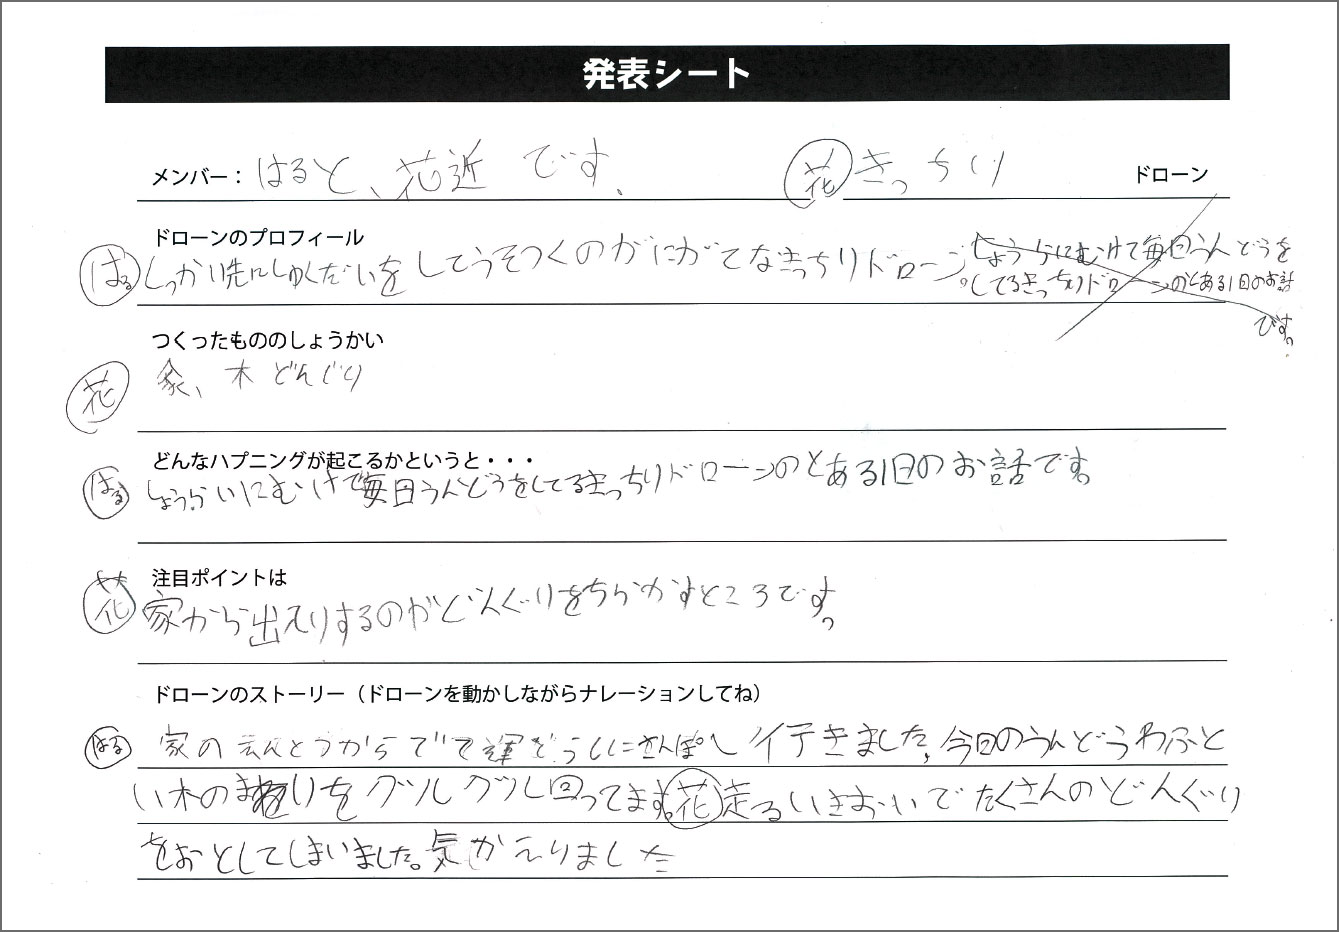 発表シート
メンバー： はると、花近 です、 花 きっちり ドローン
ドローンのプロフィール
はる しっかり先にしゅくだいを してうそつくのがにがてなきっちりドローン。しょうらいにむけて毎日うんどうを
してるきっちりドローンのとある1日のお話
です。
つくったもののしょうかい
花 家、木 どんぐり
どんなハプニングが起こるかというと・・・
はる しょうらいにむけて毎日うんどうをしてるきっちりドローンのとある1日のお話です。
注目ポイントは
花 家から出入りするのがどんぐりをちらかすところです。
ドローンのストーリー（ドローンを動かしながらナレーションしてね）
はる 家の えんとつからでて うしにさんぽへ 行きました、今日のうんどうわふと
い木のまわりをグルグル回ってます。花 走るいきおいでたくさんのどんぐり
をおとしてしまいました。気がえりました